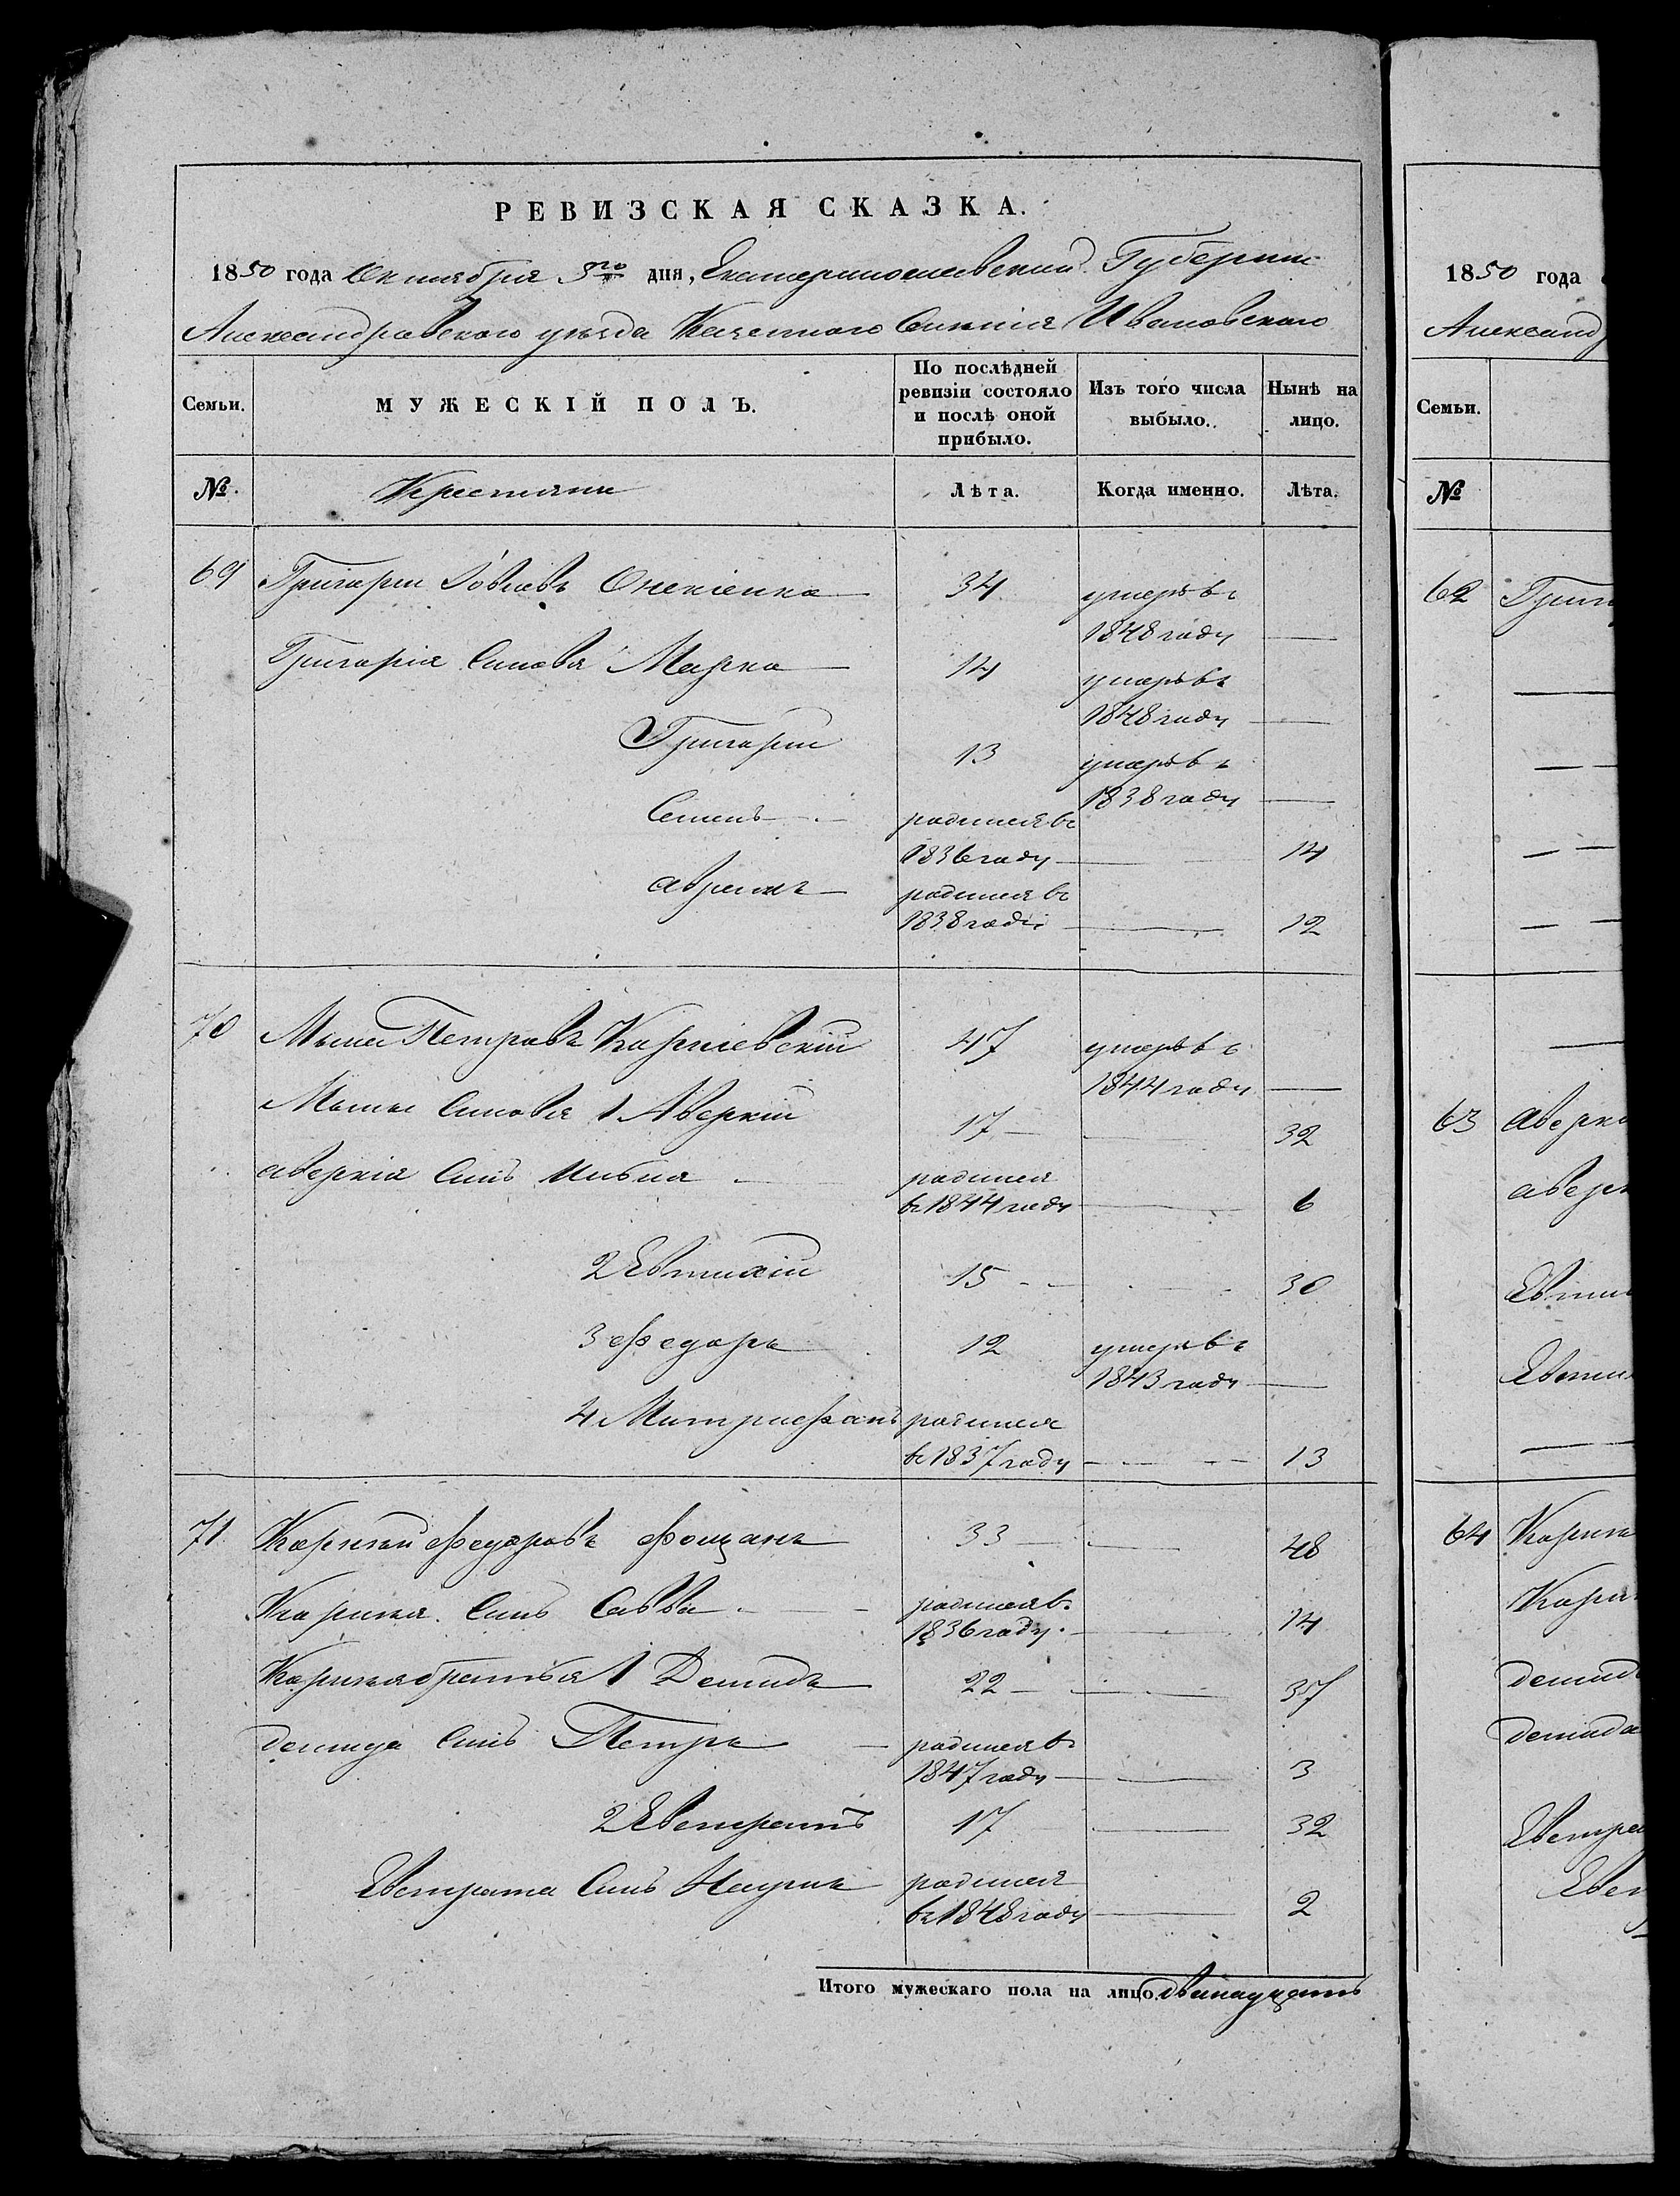 РЕВИЗСКАЯ СКАЗКА.
1850 года Октября 3го дня, Екатеринославской Губернии
Александровского уезда Казенного Селения Ивановского
Семьи. МУЖЕСКІЙ ПОЛЪ. По послѣдней ревизіи состояло и послѣ оной прибыло. Изъ того числа выбыло. Нынѣ на лицо.
№. Крестьяне Лѣта. Когда именно. Лѣта.
69 Григорій Онекіенко 34 умеръ въ 1848 году
Григорія Сыновья Марко 14 умеръ въ 1848 году
Григорій 13 умеръ въ 1838 году
Семенъ родился въ 1836 году 14
Аврамъ родился въ 1838 году 12
70 Мына Петровъ Карпіевскій 47 умеръ въ 1844 году
Мыны Сыновья 1 Аверкій 17 32
аверкія Сынъ Илья родился въ 1844 году 6
2 Евтихій 15 30
3 Федоръ 12 умеръ въ 1843 году
4 Митрофанъ родился въ 1837 году 13
71 Карней Федоровъ Фощанъ 33 48
Карнея Сынъ Савва родился въ 1836 году 14
Карнея братья 1 Демидъ 22 37
демида Сынъ Петръ родился въ 1847 году 3
2 Евстратъ 17 32
Евстрата Сынъ Наумъ родился въ 1848 году 2
Итого мужескаго пола на лицо двенадцать
1850 года
Александ
Семьи.
№
62 Григ
63 Аверки
аверк
Евти
64
демид
демида
Евстра